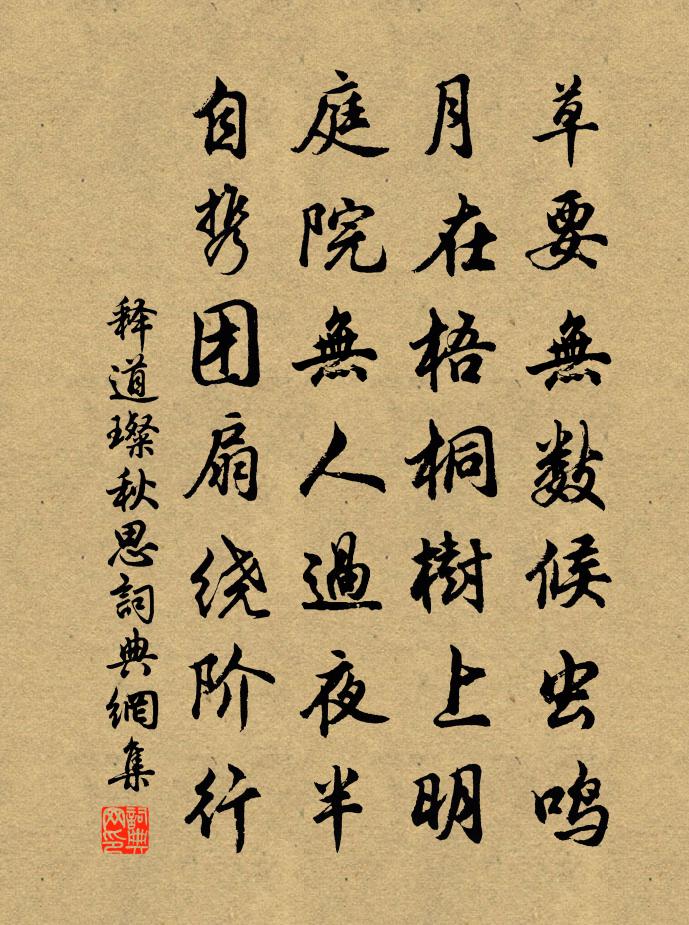 草要無数候虫鸣
月在梧桐樹上明
庭院無人過夜半
自携团扇绕阶行
释道璨秋思詞典網集
詞典网印